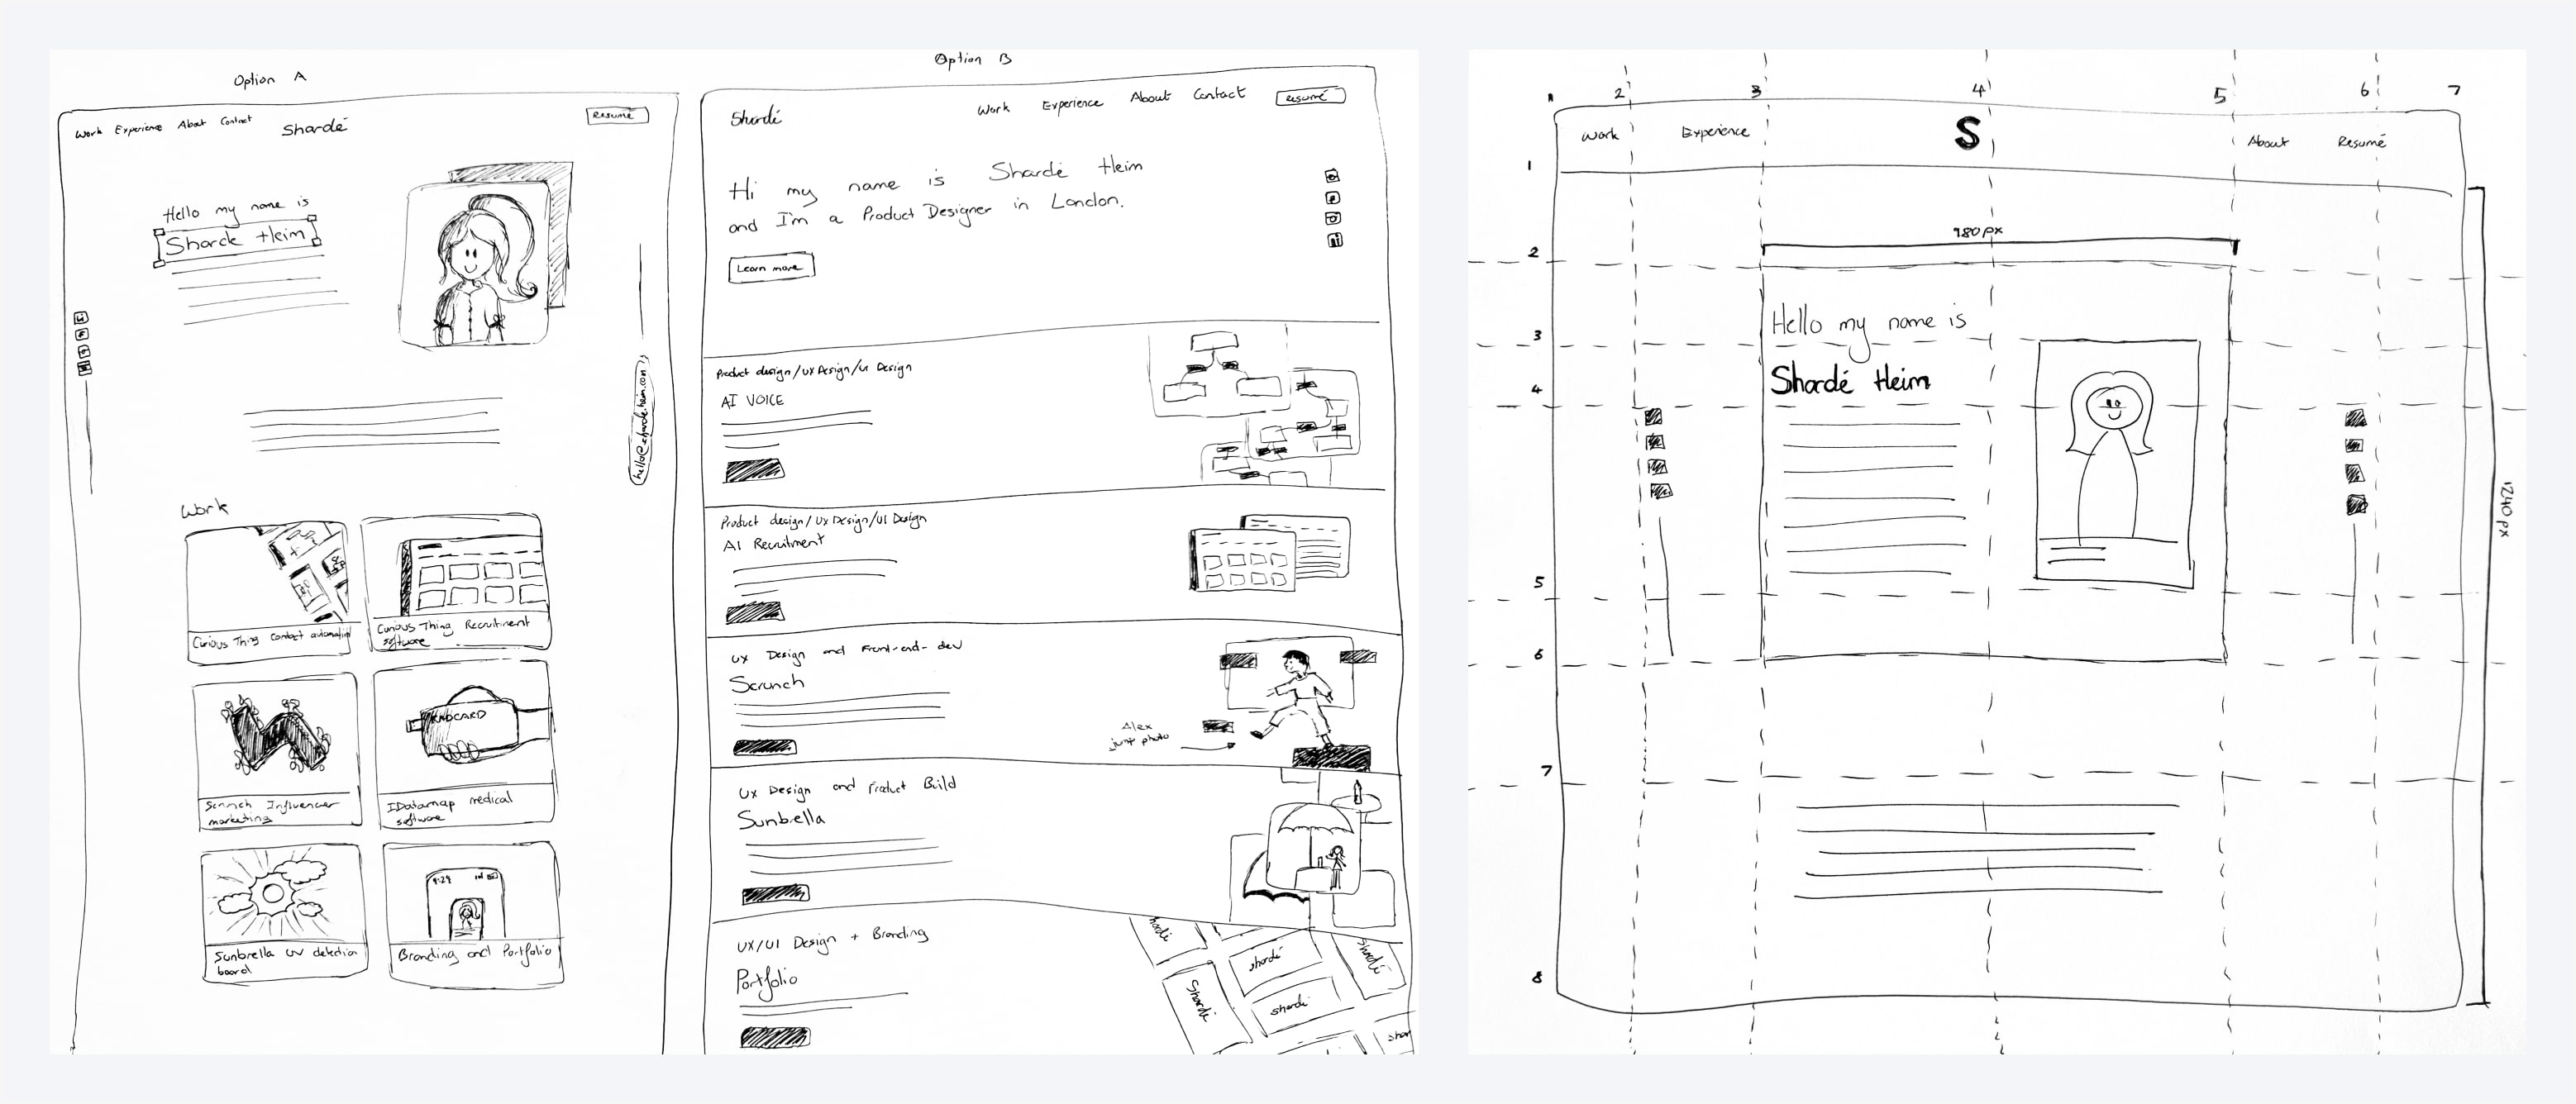 Option A
Work Experience About Contact Shardé Resumé
Hello my name is
Shardé Heim
hello@shardeheim.com
Work
Curious Thing Contact automation
Curious Thing Recruitment
software
Scrunch Influencer
marketing
RNDCARD
IDatamap medical
software
Sunbrella UV detection
board
9:29
Branding and Portfolio
Option B
Shardé Work Experience About Contact Resumé
Hi my name is Shardé Heim
and I'm a Product Designer in London.
Learn more
Product design/UX Design/UI Design
AI VOICE
Product design/UX Design/UI Design
AI Recruitment
UX Design and Front-end-dev
Scrunch
Alex
jump photo
UX Design and Product Build
Sunbrella
UX/UI Design + Branding
Portfolio
hardé
shardé
Shardé
Shardé
shardé
shar
1 2 3 4 5 6 7
Work Experience S About Resumé
1
980px
2
Hello my name is
3
Shardé Heim
4
5
6
7
8
1240px